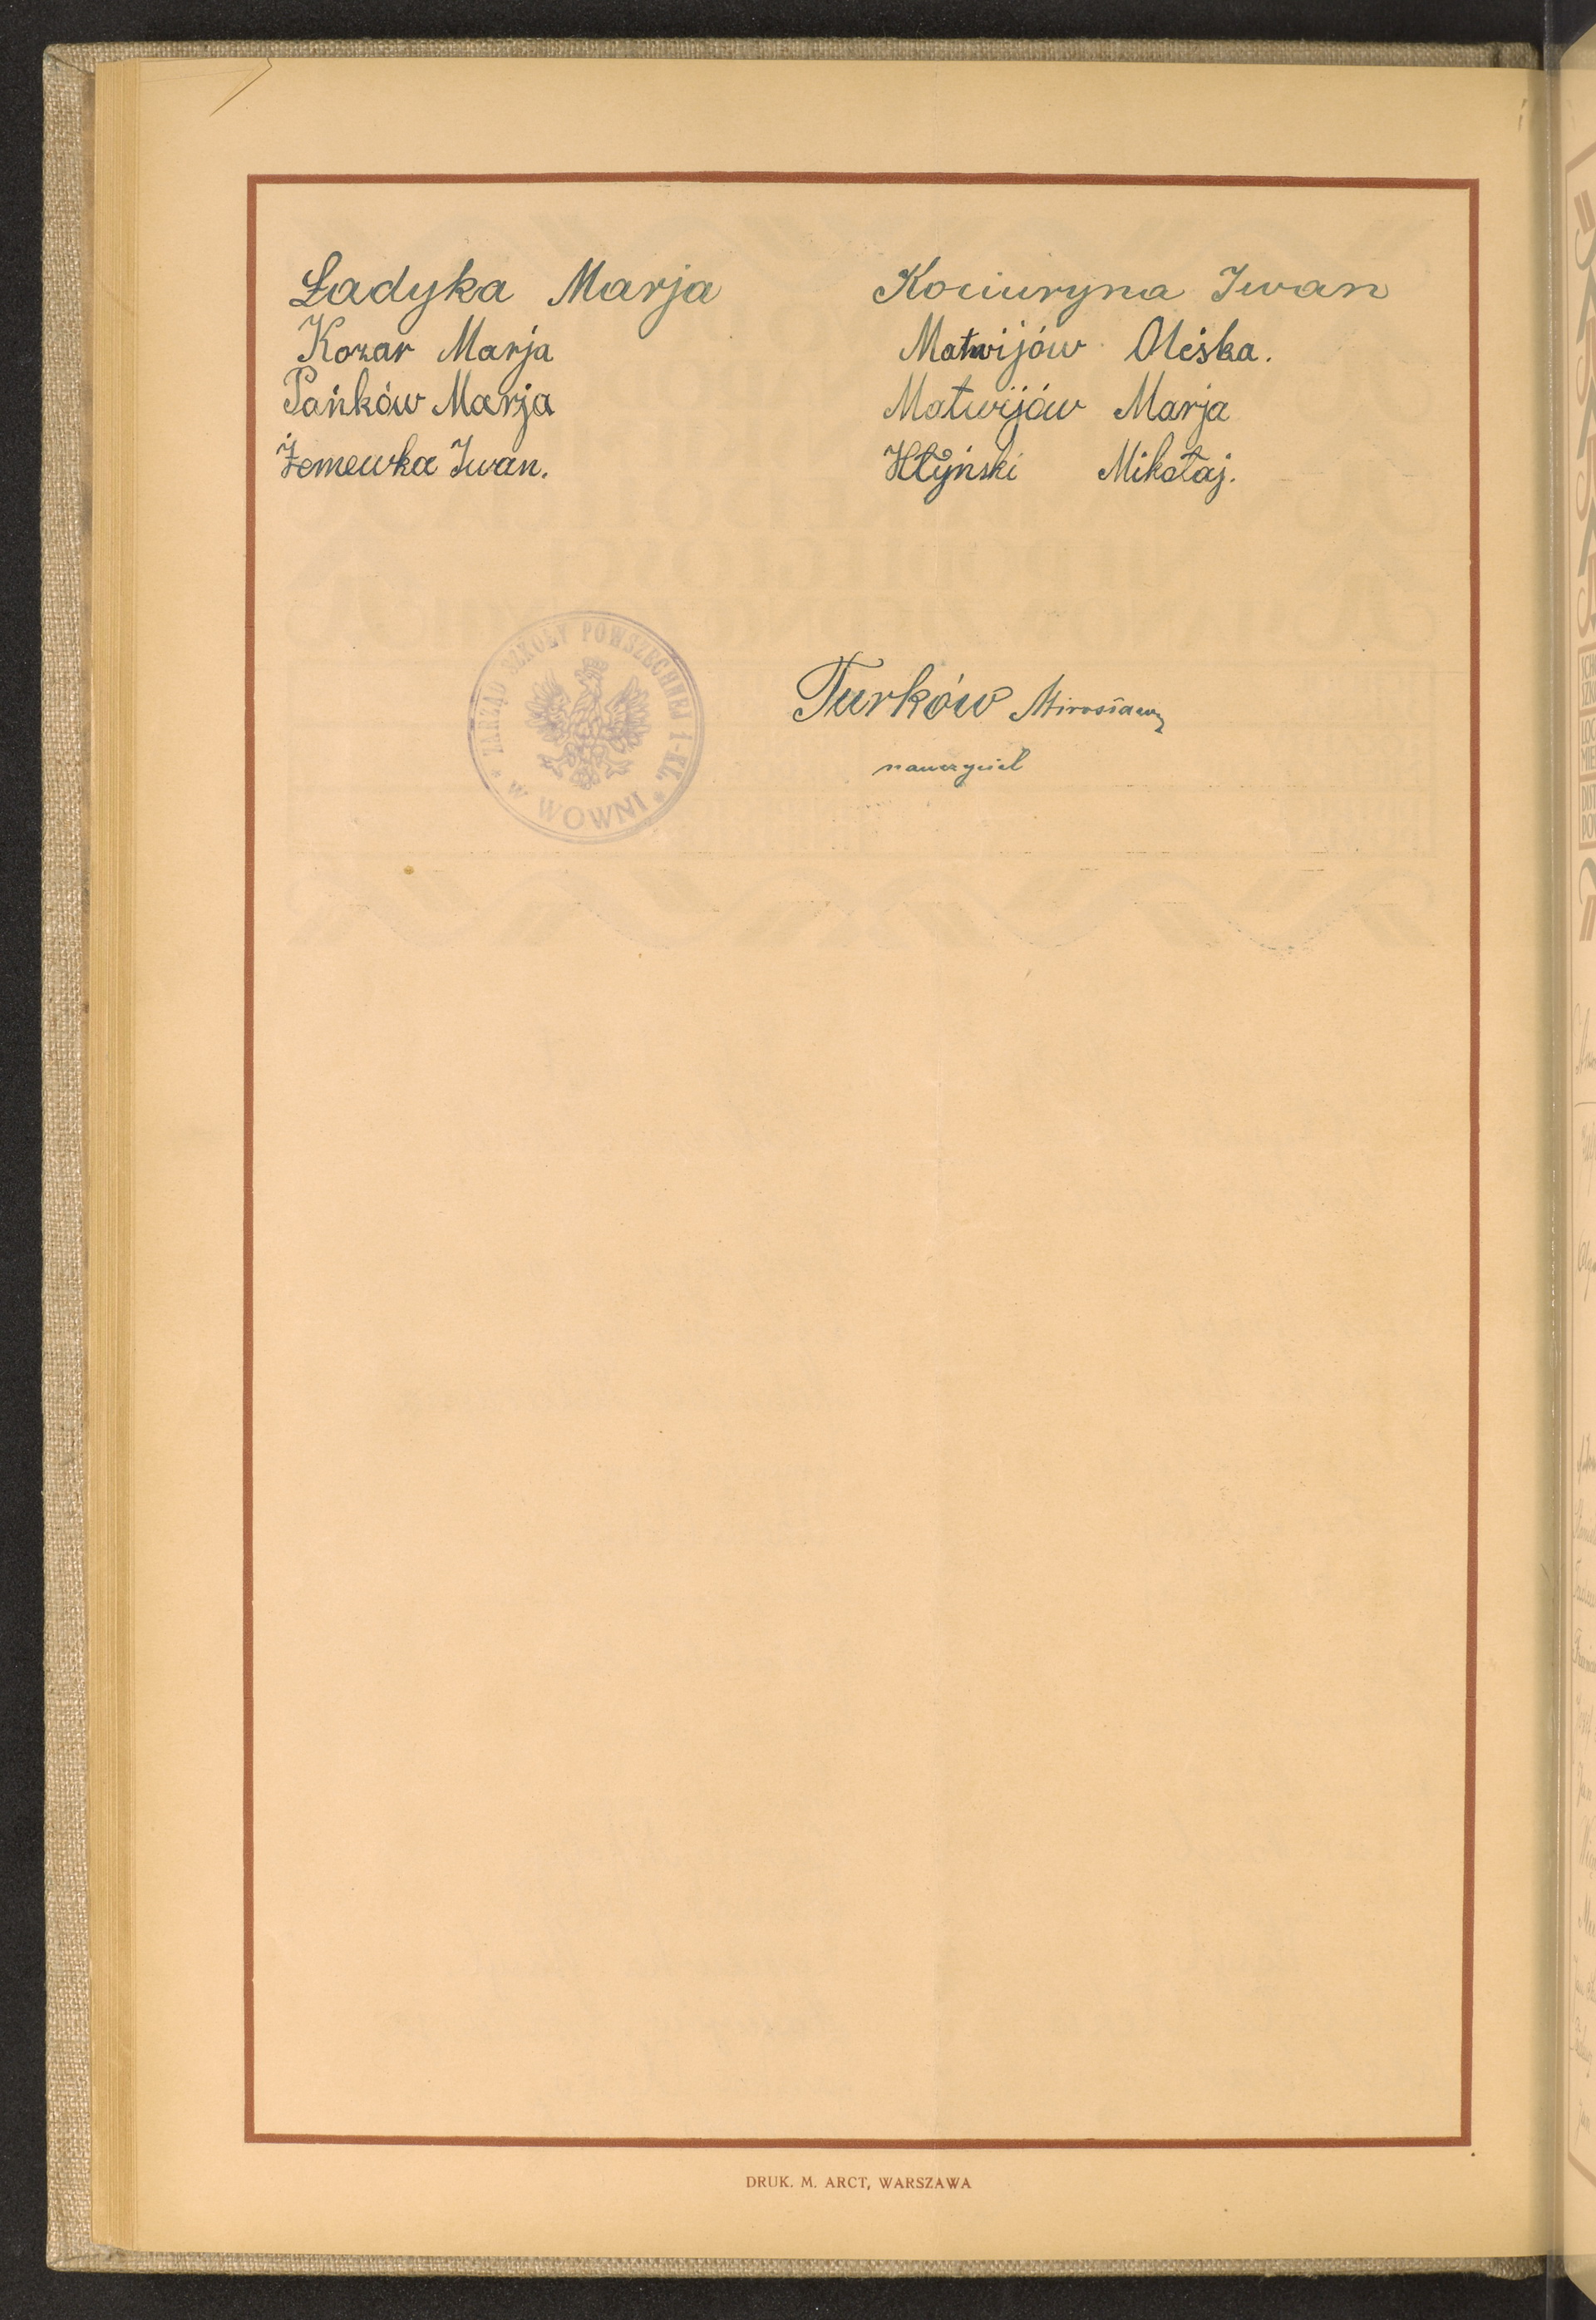 Ładyka Marja
Kozar Marja
Pańków Marja
Żemewka Iwan.
Kociuryna Iwan
Matwijów Oleśka.
Matwijów Marja
Hłyński Mikołaj.
ZARZĄD SZKOŁY POWSZECHNEJ 1-KL.
* W WOWNI *
Turków Mirosław
nauczyciel
DRUK. M. ARCT, WARSZAWA